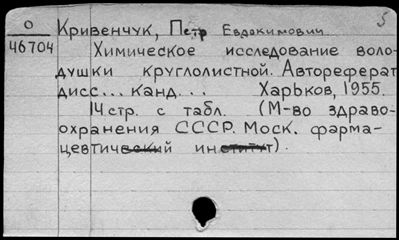 5
О
46704
Кривенчук, Петр Евдокимович
Химическое исследование воло-
душки круглолистной. Автореферат
дисс... канд... Харьков, 1955.
14 стр. с табл. (М-во здраво-
охранения СССР. Моск. фарма-
цевтический институт).